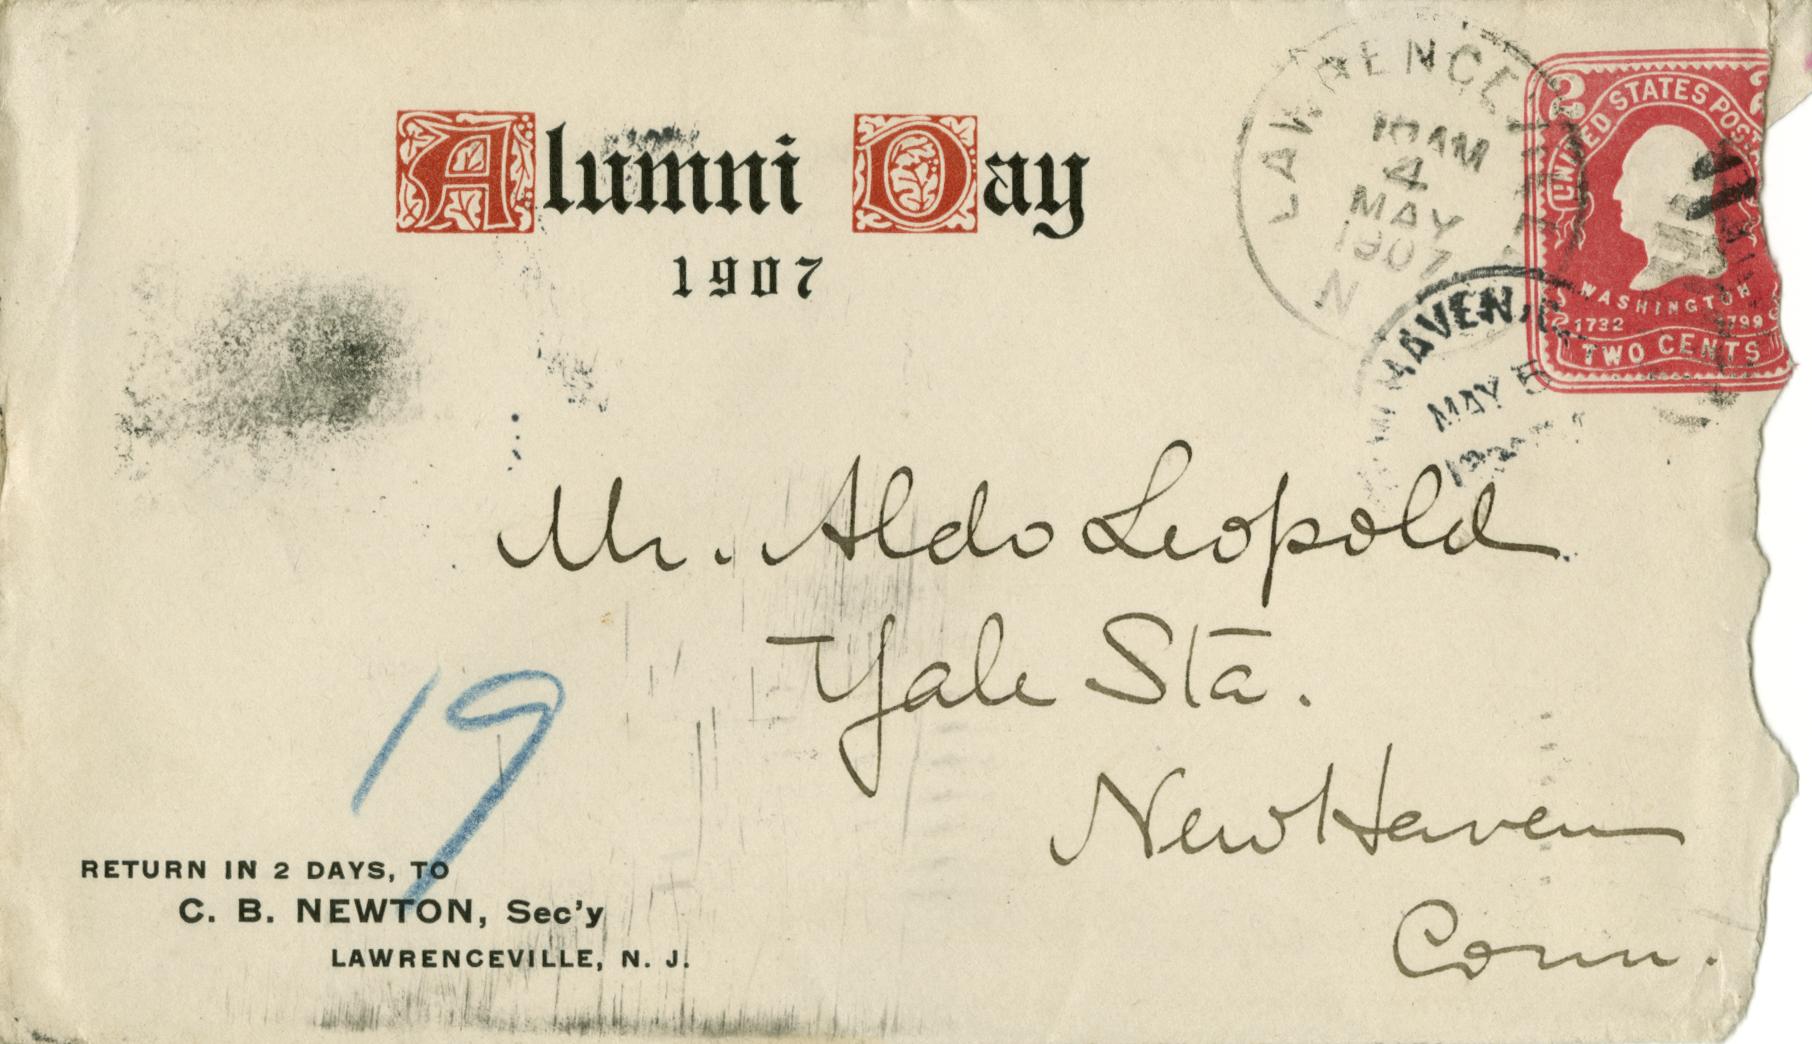 Alumni Day
1907
LAWRENCEVILLE
10 AM
4
MAY
1907
N
UNITED STATES POST
2 2
WASHINGTON
1732 1799
TWO CENTS
HAVEN,
MAY 5
Mr. Aldo Leopold
Yale Sta.
New Haven
Conn.
19
RETURN IN 2 DAYS, TO
C. B. NEWTON, Sec'y
LAWRENCEVILLE, N. J.